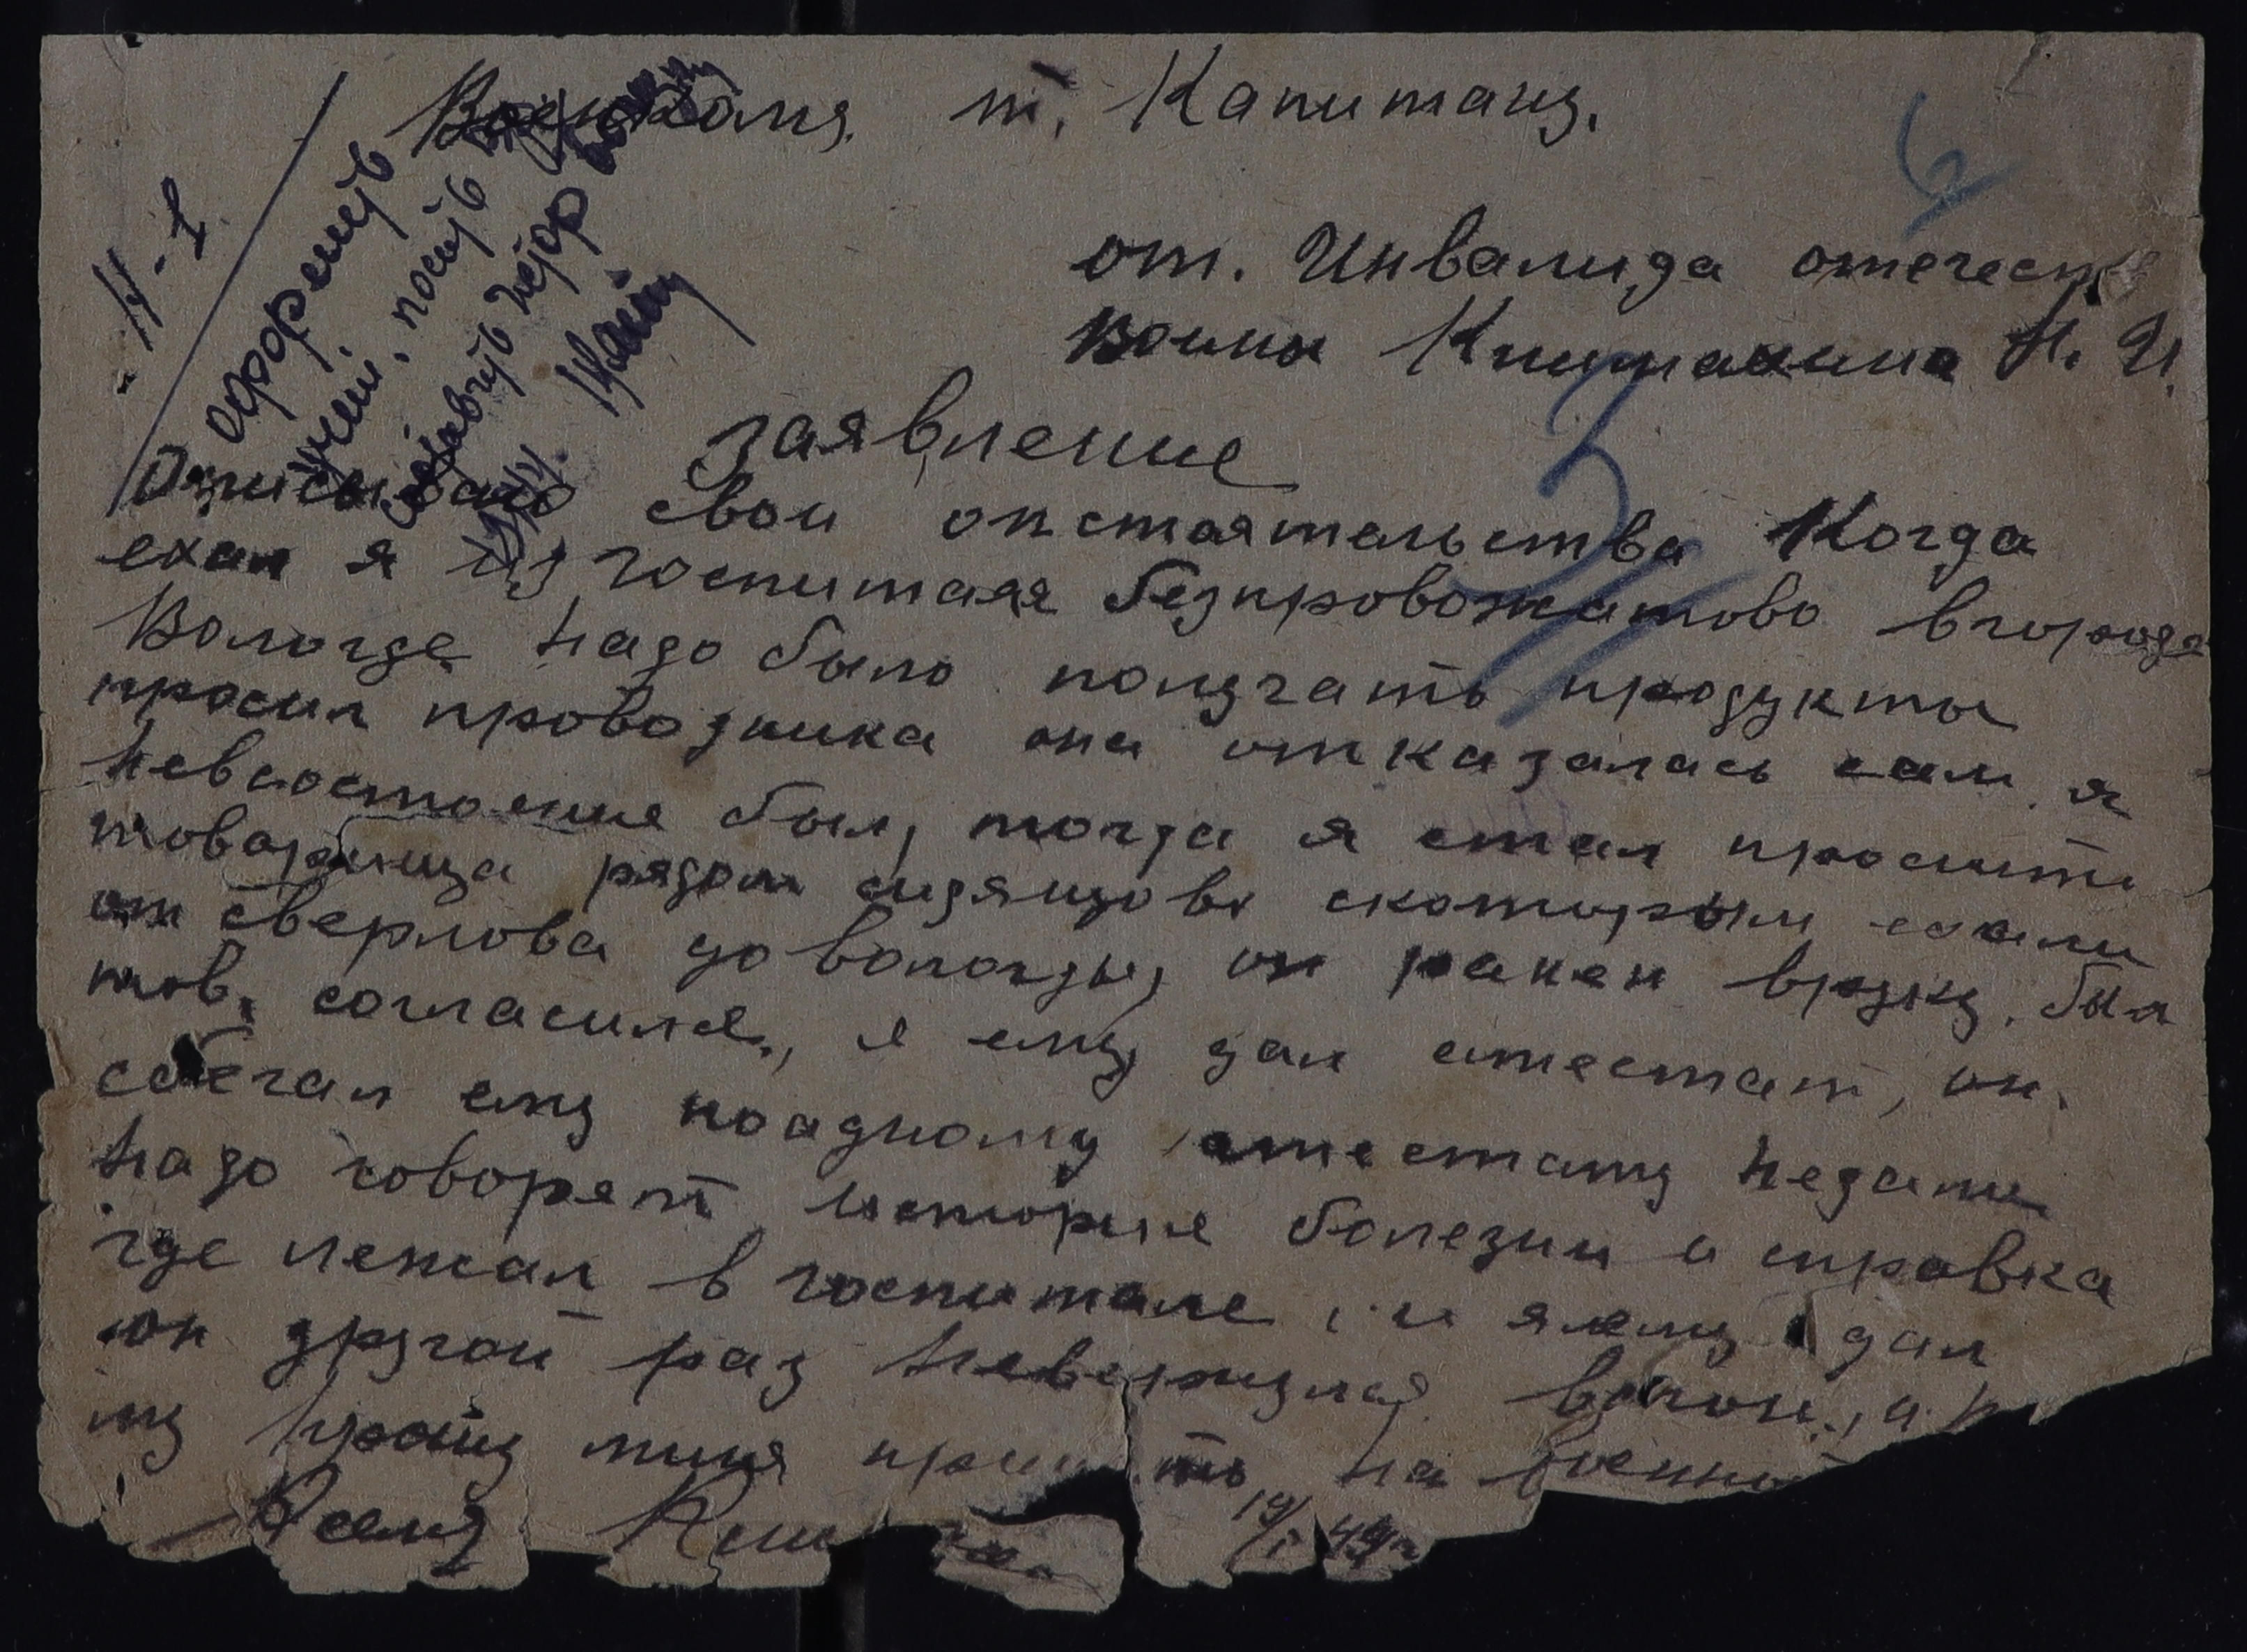 Н-1
оформить
Военкому. т. Капитану.
от. Инвалида отечест
Воины Книмахина Н. И.
заявление
Описываю свои опстаятельства Когда
ехал я из госпиталя безпровожатово вгорода
Вологде надо было получать продукты
просил проводника она отказалась сам я
невсостояние был, тогда я стал просить
товарища рядом сидящова скоторым ехали
от сверлова до вологды, он ранен вруку. был
тов. согласился, я ему дал атестат, он.
сбегал ему поадному атестату недали
надо говорят история болезни и справка
где лежал в госпитале, и яему дал
он другой раз невернулся вагон, и
му прошу миня на военно
19/I 44г